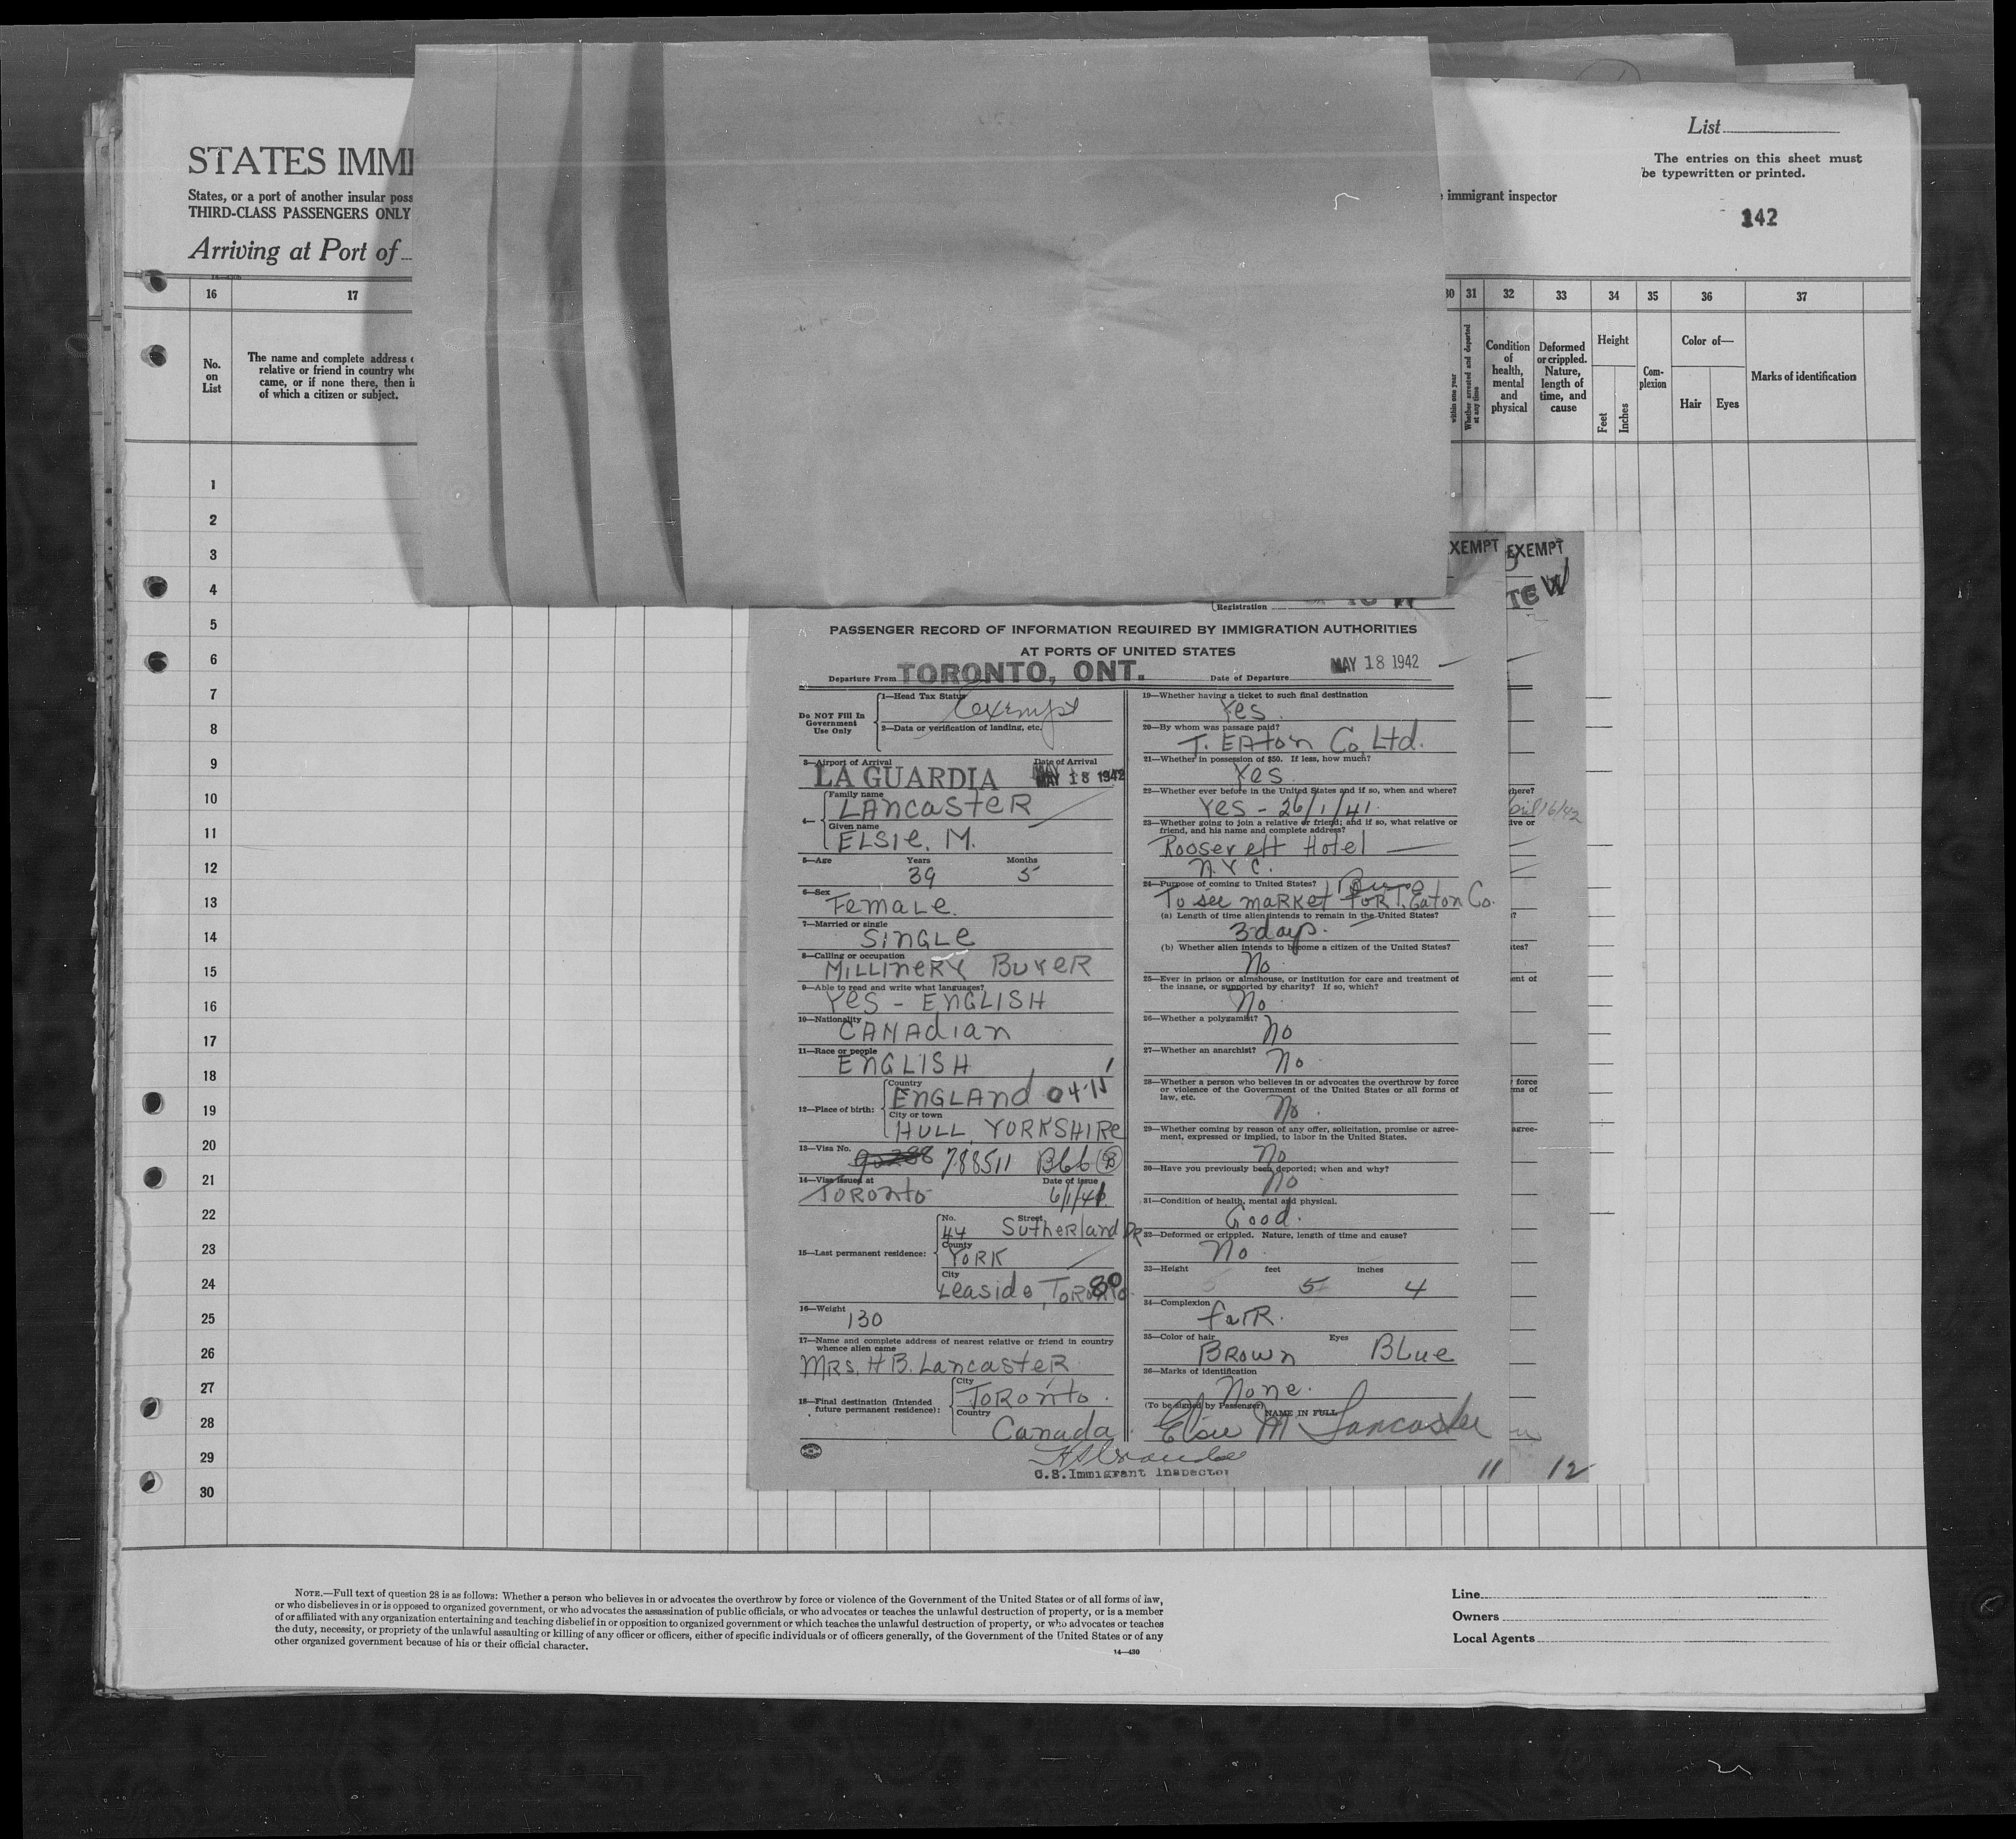 List
The entries on this sheet must
be typewritten or printed.
142
STATES IMMI
States, or a port of another insular poss
immigrant inspector
THIRD-CLASS PASSENGERS ONLY
Arriving at Port of
16 17 30 31 32 33 34 35 36 37
No.
on
List
The name and complete address
relative or friend in country whe
came, or if none there, then i
of which a citizen or subject.
within one year
Whether arrested and deported
at any time
Condition
of
health,
mental
and
physical
Deformed
or crippled.
Nature,
length of
time, and
cause
Height
Feet
Inches
Com-
plexion
Color of—
Hair Eyes
Marks of identification
1
2
3
4
5
6
7
8
9
10
11
12
13
14
15
16
17
18
19
20
21
22
23
24
25
26
27
28
29
30
XEMPT EXEMPT
Registration
PASSENGER RECORD OF INFORMATION REQUIRED BY IMMIGRATION AUTHORITIES
AT PORTS OF UNITED STATES
Departure From TORONTO, ONT. Date of Departure MAY 18 1942
Do NOT Fill In
Government
Use Only
1—Head Tax Status
Exempt
2—Data or verification of landing, etc.
3—Airport of Arrival Date of Arrival
LA GUARDIA MAY 18 1942
4—
Family name
LANCASTER
Given name
ELSIE. M.
5—Age Years Months
39 5
6—Sex
Female.
7—Married or single
SINGLE
8—Calling or occupation
MILLINERY BUYER
9—Able to read and write what languages?
Yes - ENGLISH
10—Nationality
CANADIAN
11—Race or people
ENGLISH
12—Place of birth:
Country
ENGLAND 04-11
City or town
HULL, YORKSHIRE
13—Visa No.
788511 B66 B
14—Visa issued at Date of issue
TORONTO 6/1/41
15—Last permanent residence:
No. Street
44 Sutherland DR
County
YORK
City
Leaside, TORONTO 80
16—Weight
130
17—Name and complete address of nearest relative or friend in country
whence alien came
MRS. H B. Lancaster
18—Final destination (Intended
future permanent residence):
City
TORONTO.
Country
Canada
19—Whether having a ticket to such final destination
Yes
20—By whom was passage paid?
T. EATON Co. Ltd.
21—Whether in possession of $50. If less, how much?
Yes.
22—Whether ever before in the United States and if so, when and where?
Yes - 26/1/41.
23—Whether going to join a relative or friend; and if so, what relative or
friend, and his name and complete address?
Roosevelt Hotel
N.Y.C.
24—Purpose of coming to United States?
To see market for T. Eaton Co.
(a) Length of time alien intends to remain in the United States?
3 days.
(b) Whether alien intends to become a citizen of the United States?
No
25—Ever in prison or almshouse, or institution for care and treatment of
the insane, or supported by charity? If so, which?
No
26—Whether a polygamist?
No
27—Whether an anarchist?
No
28—Whether a person who believes in or advocates the overthrow by force
or violence of the Government of the United States or all forms of
law, etc.
No.
29—Whether coming by reason of any offer, solicitation, promise or agree-
ment, expressed or implied, to labor in the United States.
No
30—Have you previously been deported; when and why?
No
31—Condition of health, mental and physical.
Good.
32—Deformed or crippled. Nature, length of time and cause?
No.
33—Height feet inches
5 4
34—Complexion
Fair.
35—Color of hair Eyes
Brown Blue
36—Marks of identification
None.
(To be signed by Passenger) NAME IN FULL
Elsie M Lancaster
U.S. Immigrant Inspector
11 12
NOTE.—Full text of question 28 is as follows: Whether a person who believes in or advocates the overthrow by force or violence of the Government of the United States or of all forms of law,
or who disbelieves in or is opposed to organized government, or who advocates the assassination of public officials, or who advocates or teaches the unlawful destruction of property, or is a member
of or affiliated with any organization entertaining and teaching disbelief in or opposition to organized government or which teaches the unlawful destruction of property, or who advocates or teaches
the duty, necessity, or propriety of the unlawful assaulting or killing of any officer or officers, either of specific individuals or of officers generally, of the Government of the United States or of any
other organized government because of his or their official character.
14—430
Line
Owners
Local Agents